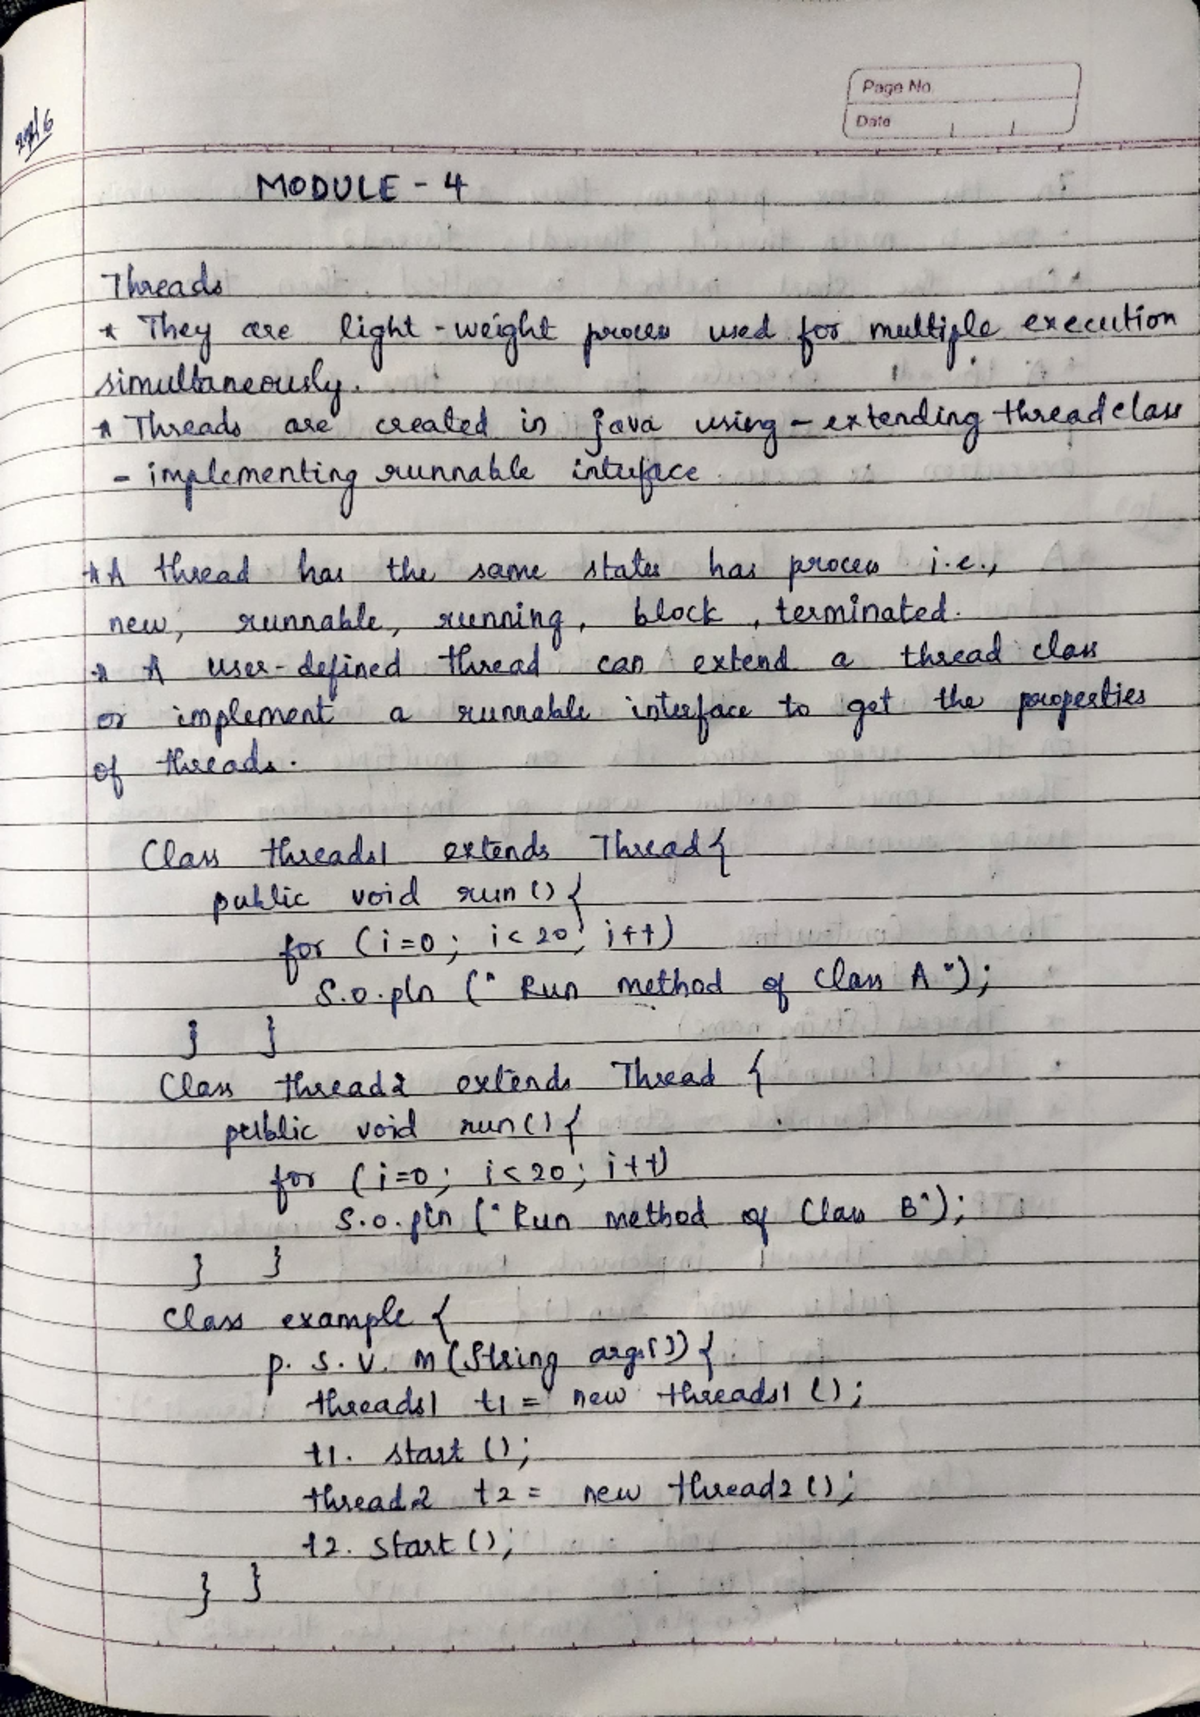 Page No.
Date
MODULE - 4
Threads
* They are light-weight process used for multiple execution
simultaneously.
* Threads are created in java using - extending thread class
- implementing runnable interface.
* A thread has the same states has process i.e.,
new, runnable, running, block, terminated.
* A user-defined thread can extend a thread class
or implement a runnable interface to get the properties
of threads.
Class threads1 extends Thread{
public void run () {
for (i=0; i<20; i++)
S.o.pln (" Run method of Class A ");
} }
Class thread2 extends Thread {
public void run () {
for (i=0; i<20; i++)
S.o.pln (" Run method of Class B");
} }
Class example {
p. s. v. m (String args[]) {
threads1 t1 = new threads1 ();
t1. start ();
thread2 t2 = new thread2 ();
t2. start ();
} }